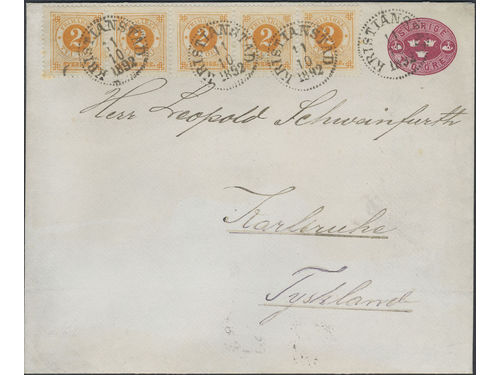 2 2 2 2 2
KRISTIANSTAD 11 10 1892
KRISTIANSTAD 11 10 1892
KRISTIANSTAD 11 10 1892
KRISTIANSTAD
SVERIGE
Herr Leopold Schweinfurth
Karlsruhe
Tyskland